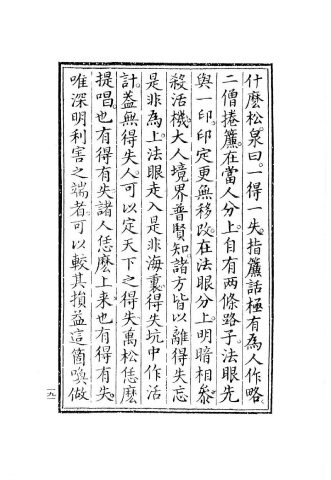 什麽松泉曰。一得一失。指簾話極有為人作略。
二僧捲簾。在當人分上自有两條路子。法眼先
與一印。印定更無移改。在法眼分上。明暗相叅。
殺活機。大人境界普賢知。諸方皆以離得失忘
是非為上。法眼走入是非海裏。得失坑中作活
計。葢無得失人。可以定天下之得失。萬松恁麽
提唱。也有得有失。諸人恁麽上来。也有得有失。
唯深明利害之端者。可以較其損益這箇喚做
一九